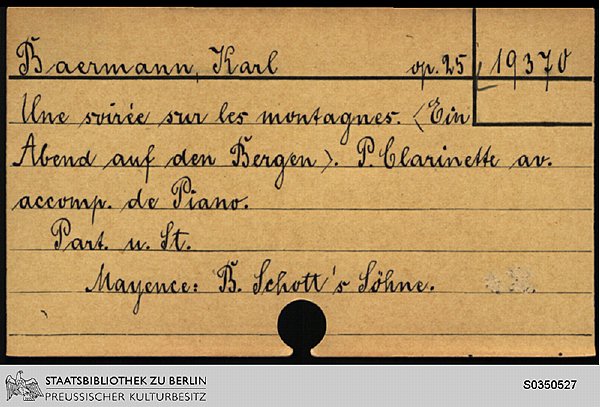 Baermann, Karl op. 25 19370
Une soirée sur les montagnes. <Ein
Abend auf den Bergen>. P. Clarinette av.
accomp. de Piano.
Part. u. St.
Mayence: B. Schott's Söhne.
STAATSBIBLIOTHEK ZU BERLIN
PREUSSISCHER KULTURBESITZ
S0350527